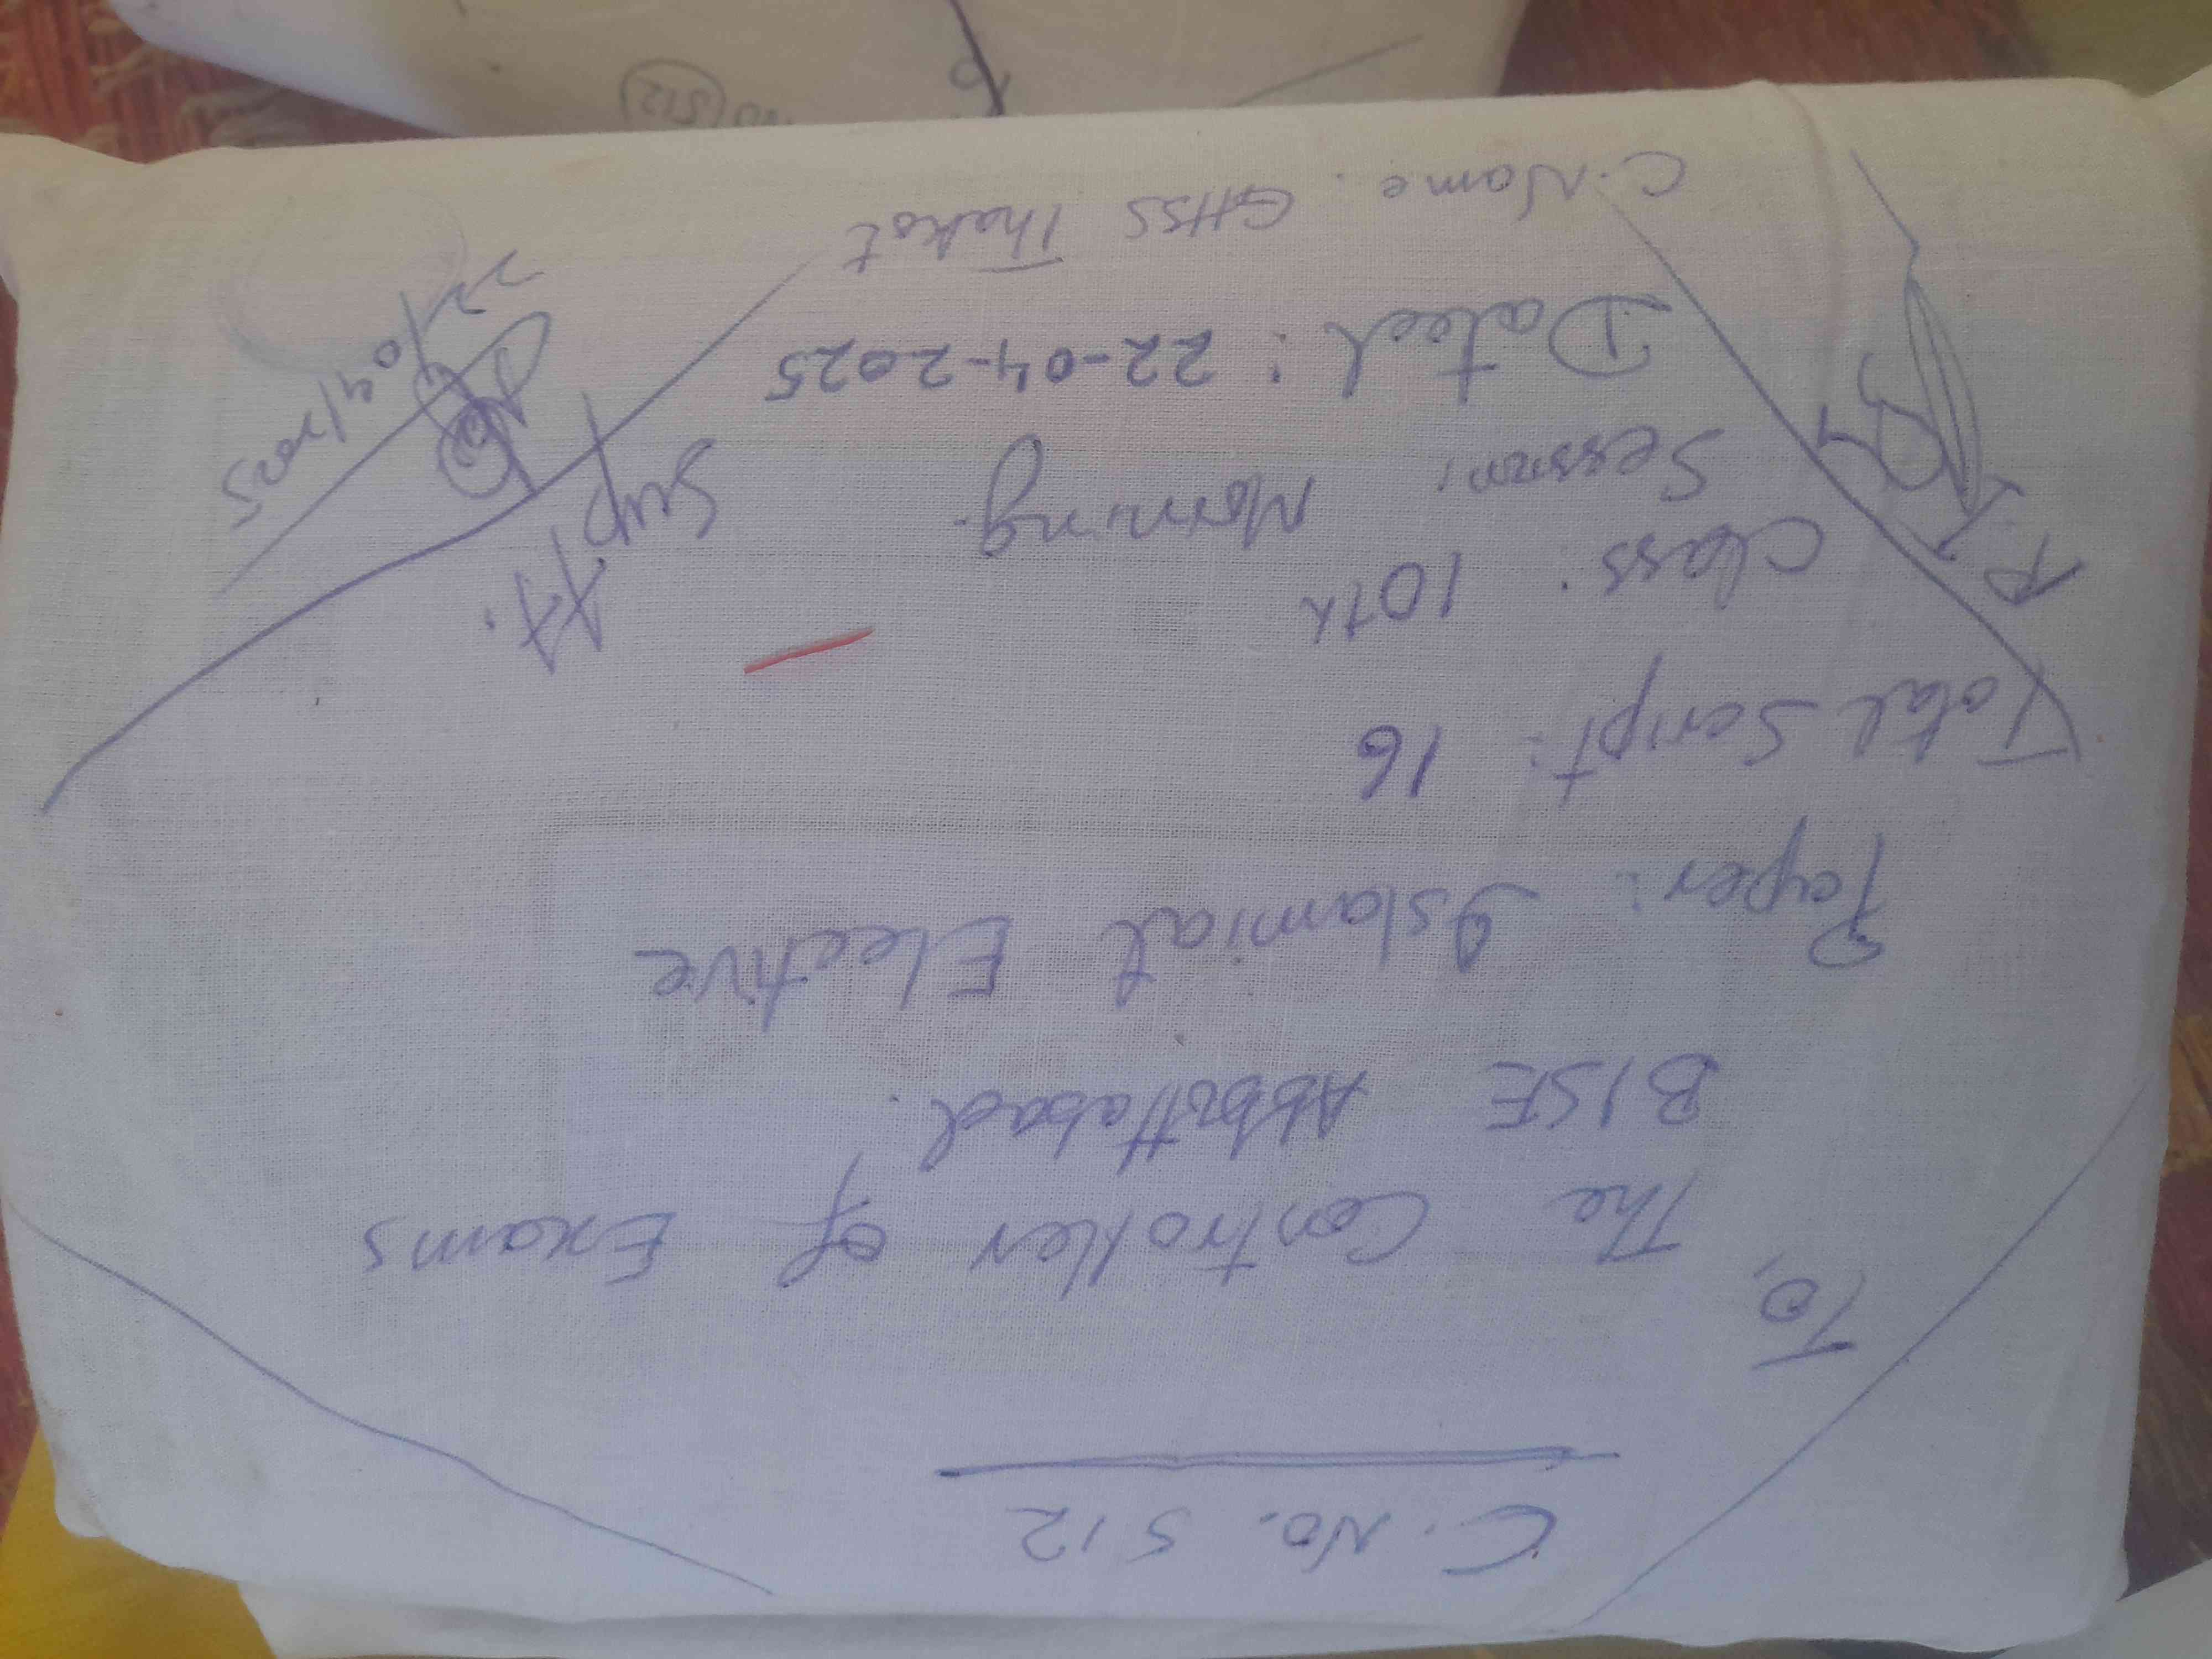 C. No. 512
To,
The Controller of Exams
BISE Abbottabad.
Paper: Islamiat Elective
Total Script: 16
Class: 10th
Session: Morning.
Dated: 22-04-2025
C. Name. GHSS Thakot
R.I
Sup
22/04/2025
512